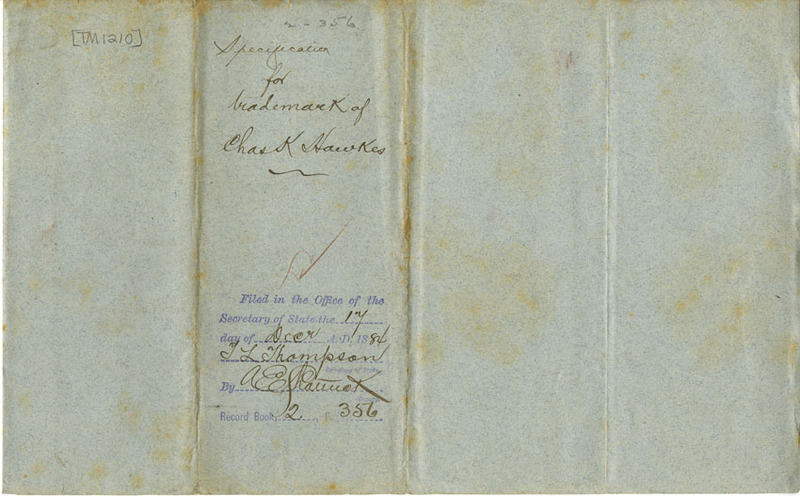 [TM1210]
2-356
Specification
for
trademark of
Chas K Hawkes
Filed in the Office of the
Secretary of State the 17
day of Decr A.D. 1884
T L Thompson
Secretary of State
By A E
Record Book 2 P. 356